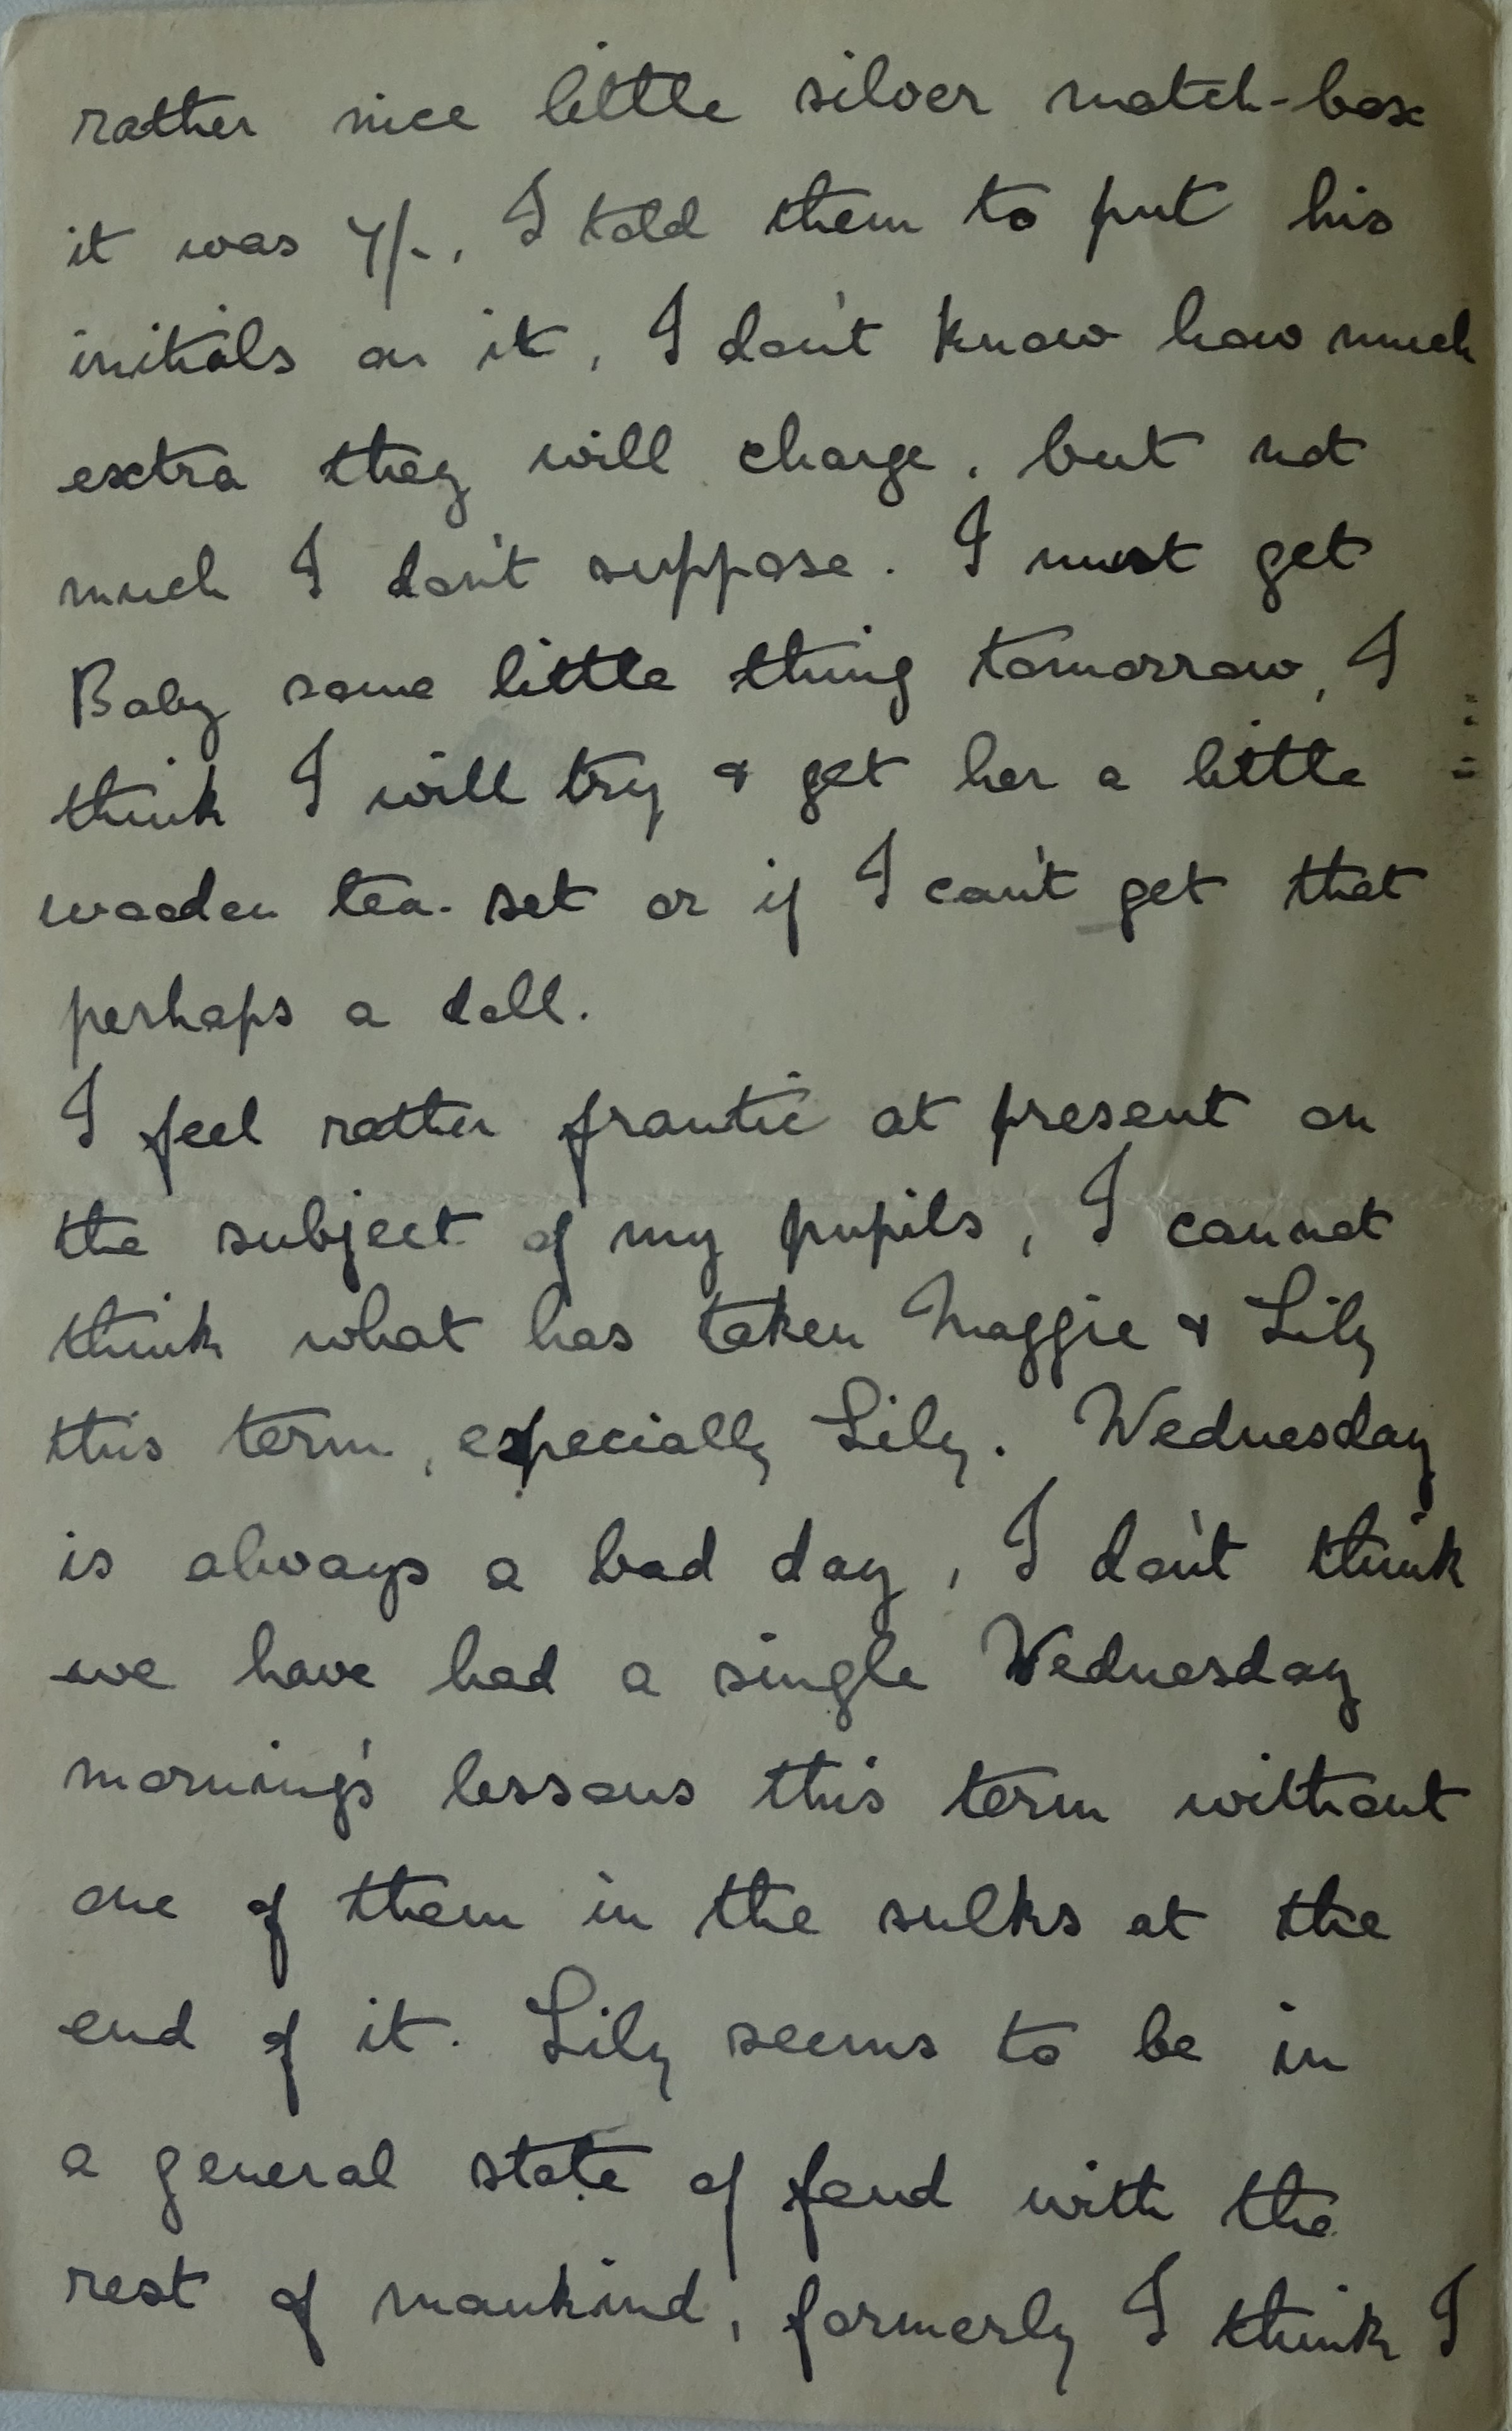 rather nice little silver match-box
it was 7/-, I told them to put his
initials on it, I don't know how much
extra they will charge, but not
much I don't suppose. I must get
Baby some little thing tomorrow, I
think I will try & get her a little
wooden tea-set or if I can't get that
perhaps a doll.
I feel rather frantic at present on
the subject of my pupils, I cannot
think what has taken Maggie & Lily
this term, especially Lily. Wednesday
is always a bad day, I don't think
we have had a single Wednesday
morning's lessons this term without
one of them in the sulks at the
end of it. Lily seems to be in
a general state of feud with the
rest of mankind, formerly I think I